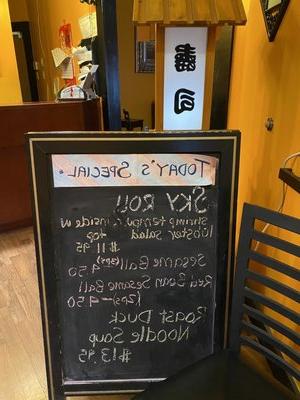 壽
司
TODAY'S SPECIAL
SKY Roll
shrimp tempura inside w
lobster salad top
$11.95
Sesame Ball
4.50
Red Bean Sesame
Ball
(2ps) - 4.50
Roast Duck
Noodle Soup
$13.95